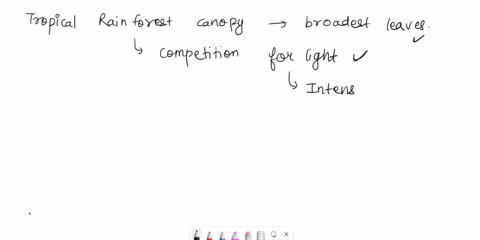 Tropical Rain forest canopy → broadest leaves. ✓
↳ competition for light ✓
↳ Intens